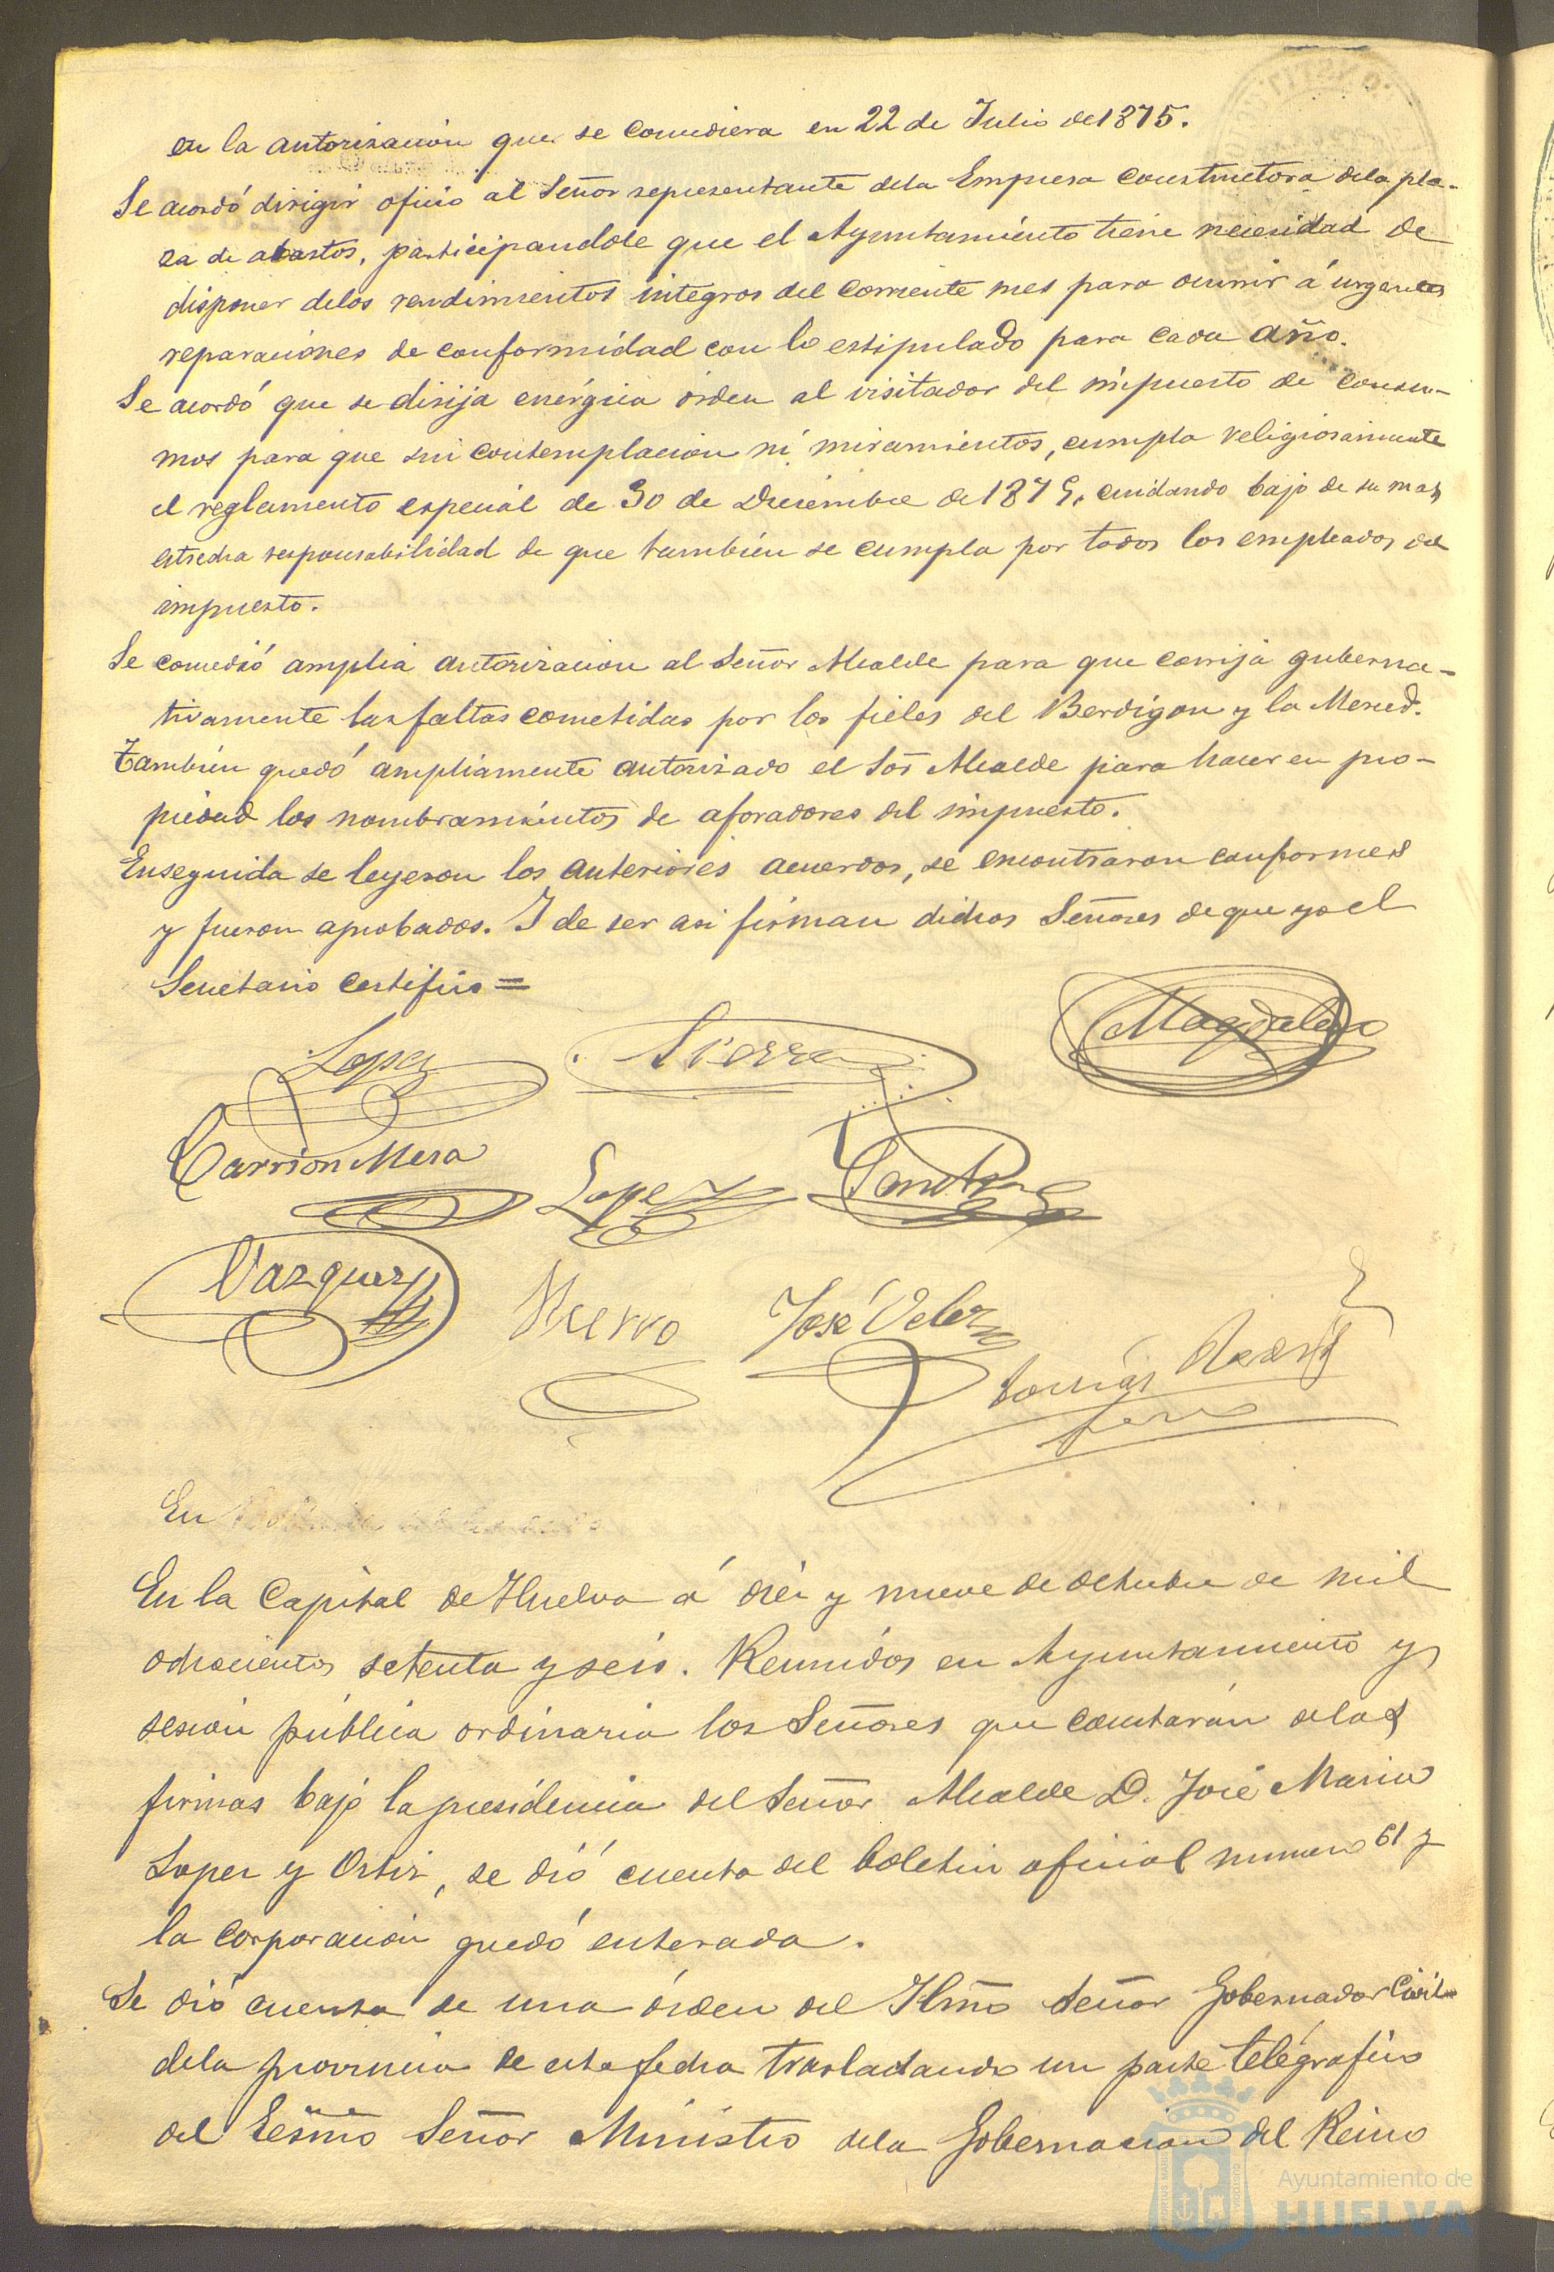 en la autorización que se concediera en 22 de Julio de 1875.
Se acordó dirigir oficio al Señor representante dela Empresa constructora dela pla-
za de abastos, participandole que el Ayuntamiento tiene necesidad de
disponer delos rendimientos integros del corriente mes para ocurrir á urgentes
reparaciones de conformidad con lo estipulado para cada año.
Se acordó que se dirija enérgica órden al visitador del impuesto de consu-
mos para que sin contemplacion ni miramientos, cumpla religiosamente
el reglamento especial de 30 de Diciembre de 187 cuidando bajo de su mas
estrecha responsabilidad de que tambien se cumpla por todos los empleados del
impuesto.
Se concedió amplia autorizacion al Señor Alcalde para que corrija guberna-
tivamente las faltas cometidas por los fieles del Berdigon y la Merced.
Tambien quedó ampliamente autorizado el Sor Alcalde para hacer en pro-
piedad los nombramientos de aforadores del impuesto.
Enseguida se leyeron los anteriores acuerdos, se encontraron conformes
y fueron aprobados. I de ser asi firman dichos Señores de que yo el
Secretario certifico =
Lopez Sierra Magdalena
Carrion Mesa Lopez
Vazquez José Velez
Tomás
En
En la Capital de Huelva á diez y nueve de octubre de mil
ochocientos setenta y seis. Reunidos en Ayuntamiento y
sesion pública ordinaria los Señores que constarán delas
firmas bajo la presidencia del Señor Alcalde D. José Maria
Lopez y Ortiz, se dió cuenta del boletin oficial numero 61 y
la corporación quedó enterada.
Se dió cuenta de una órden del Ilmo Señor Gobernador Civil
dela provincia de esta fecha trasladando un parte telégrafico
del Ecsmo Señor Ministro dela Gobernacion del Reino
Ayuntamiento de
HUELVA